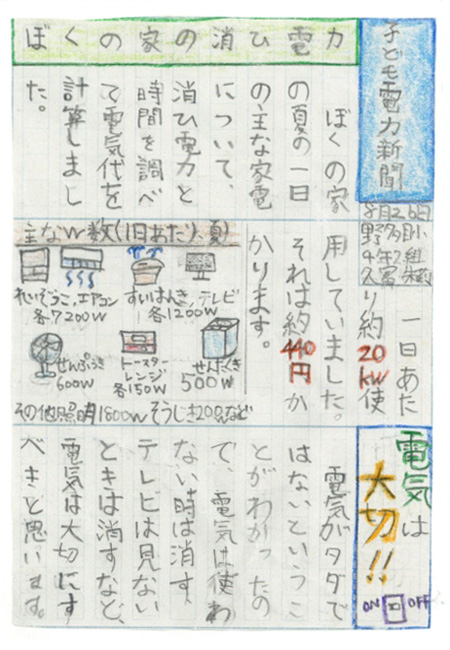 子ども電力新聞
8月26日
野多目小
4年2組
ぼくの家の消ひ電力
ぼくの家
の夏の一日
の主な家電
について、
消ひ電力と
時間を調べ
て電気代を
計算しまし
た。
主なW数(1日あたり、夏)
れいぞうこ、エアコン
各7200W
すいはんき、テレビ
各1200W
せんぷうき
600W
トースター
レンジ
各150W
せんたくき
500W
その他照明1800Wそうじき200Wなど
一日あた
り約20kw使
用していました。
それは約440円か
かります。
電気は
大切!!
ON OFF
電気がタダで
はないというこ
とがわかったの
で、電気は使わ
ない時は消す、
テレビは見ない
ときは消すなど、
電気は大切にす
べきと思います。